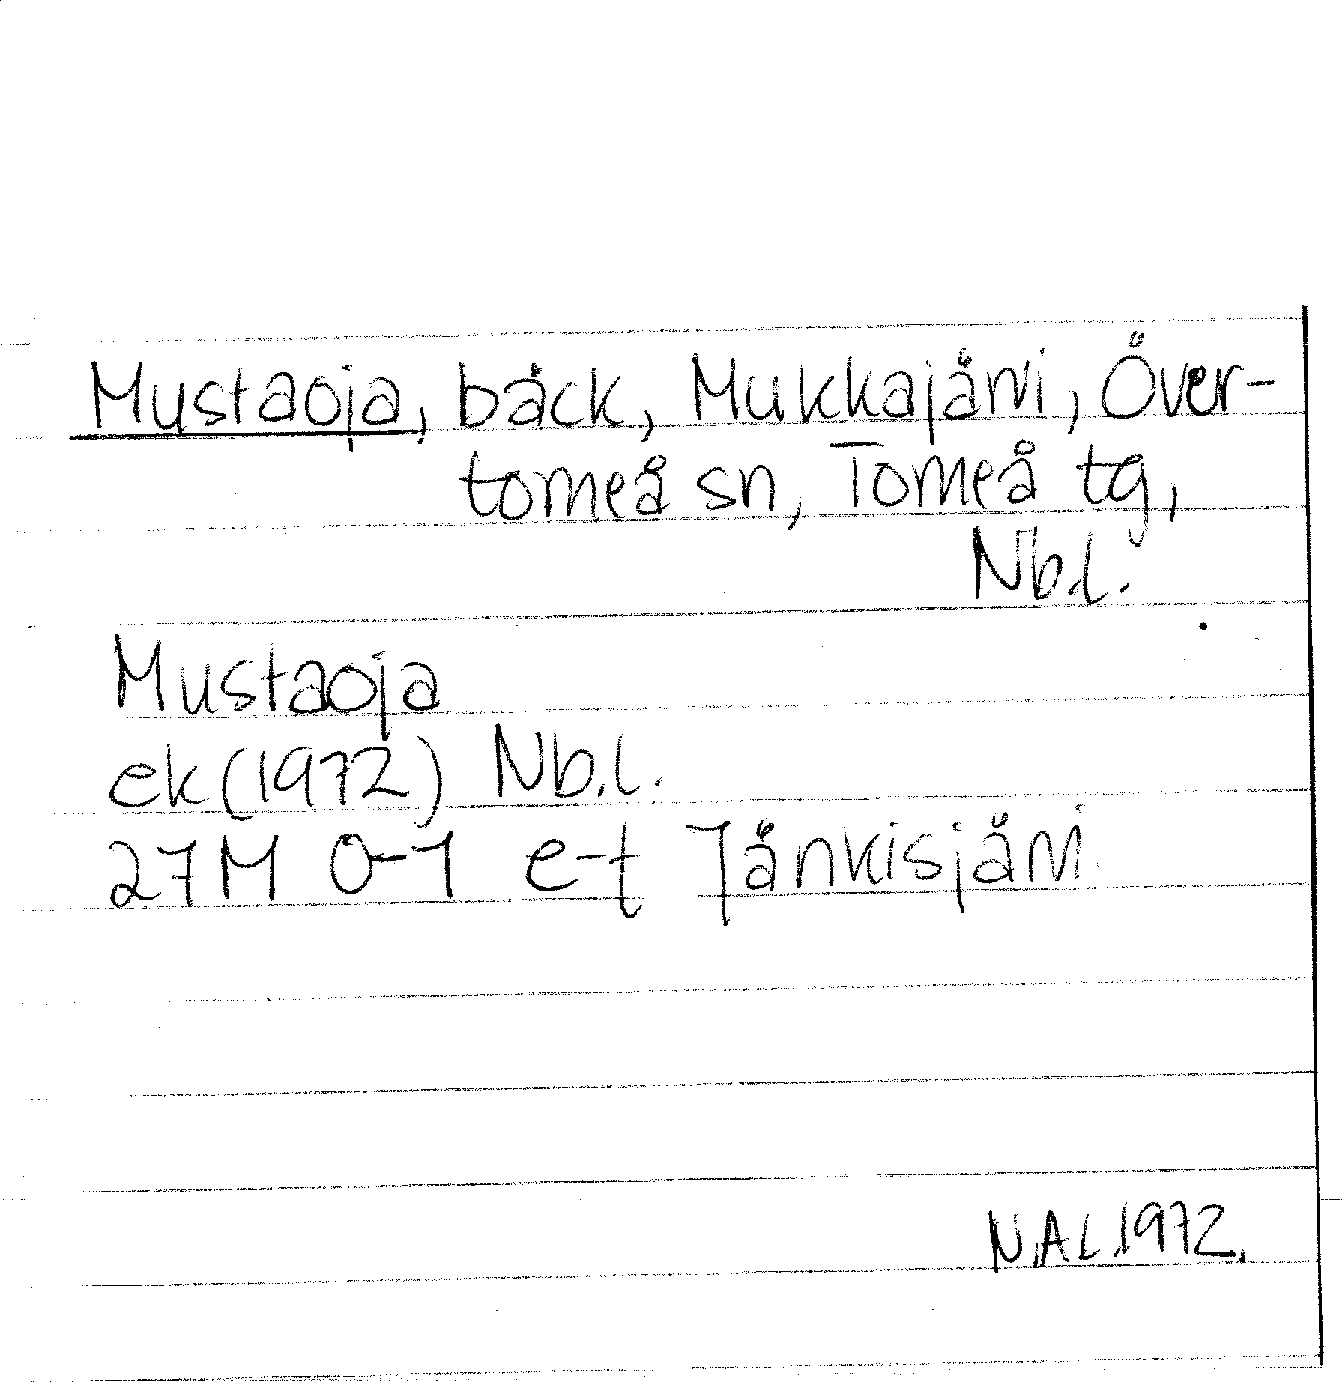 Mustaoja, bäck, Mukkajärvi, Över-
torneå sn, Torneå tg,
Nb.l.
Mustaoja
ek (1972) Nb.l.
27M 0-1 e-f Jänkisjärvi
N.A.L.1972.